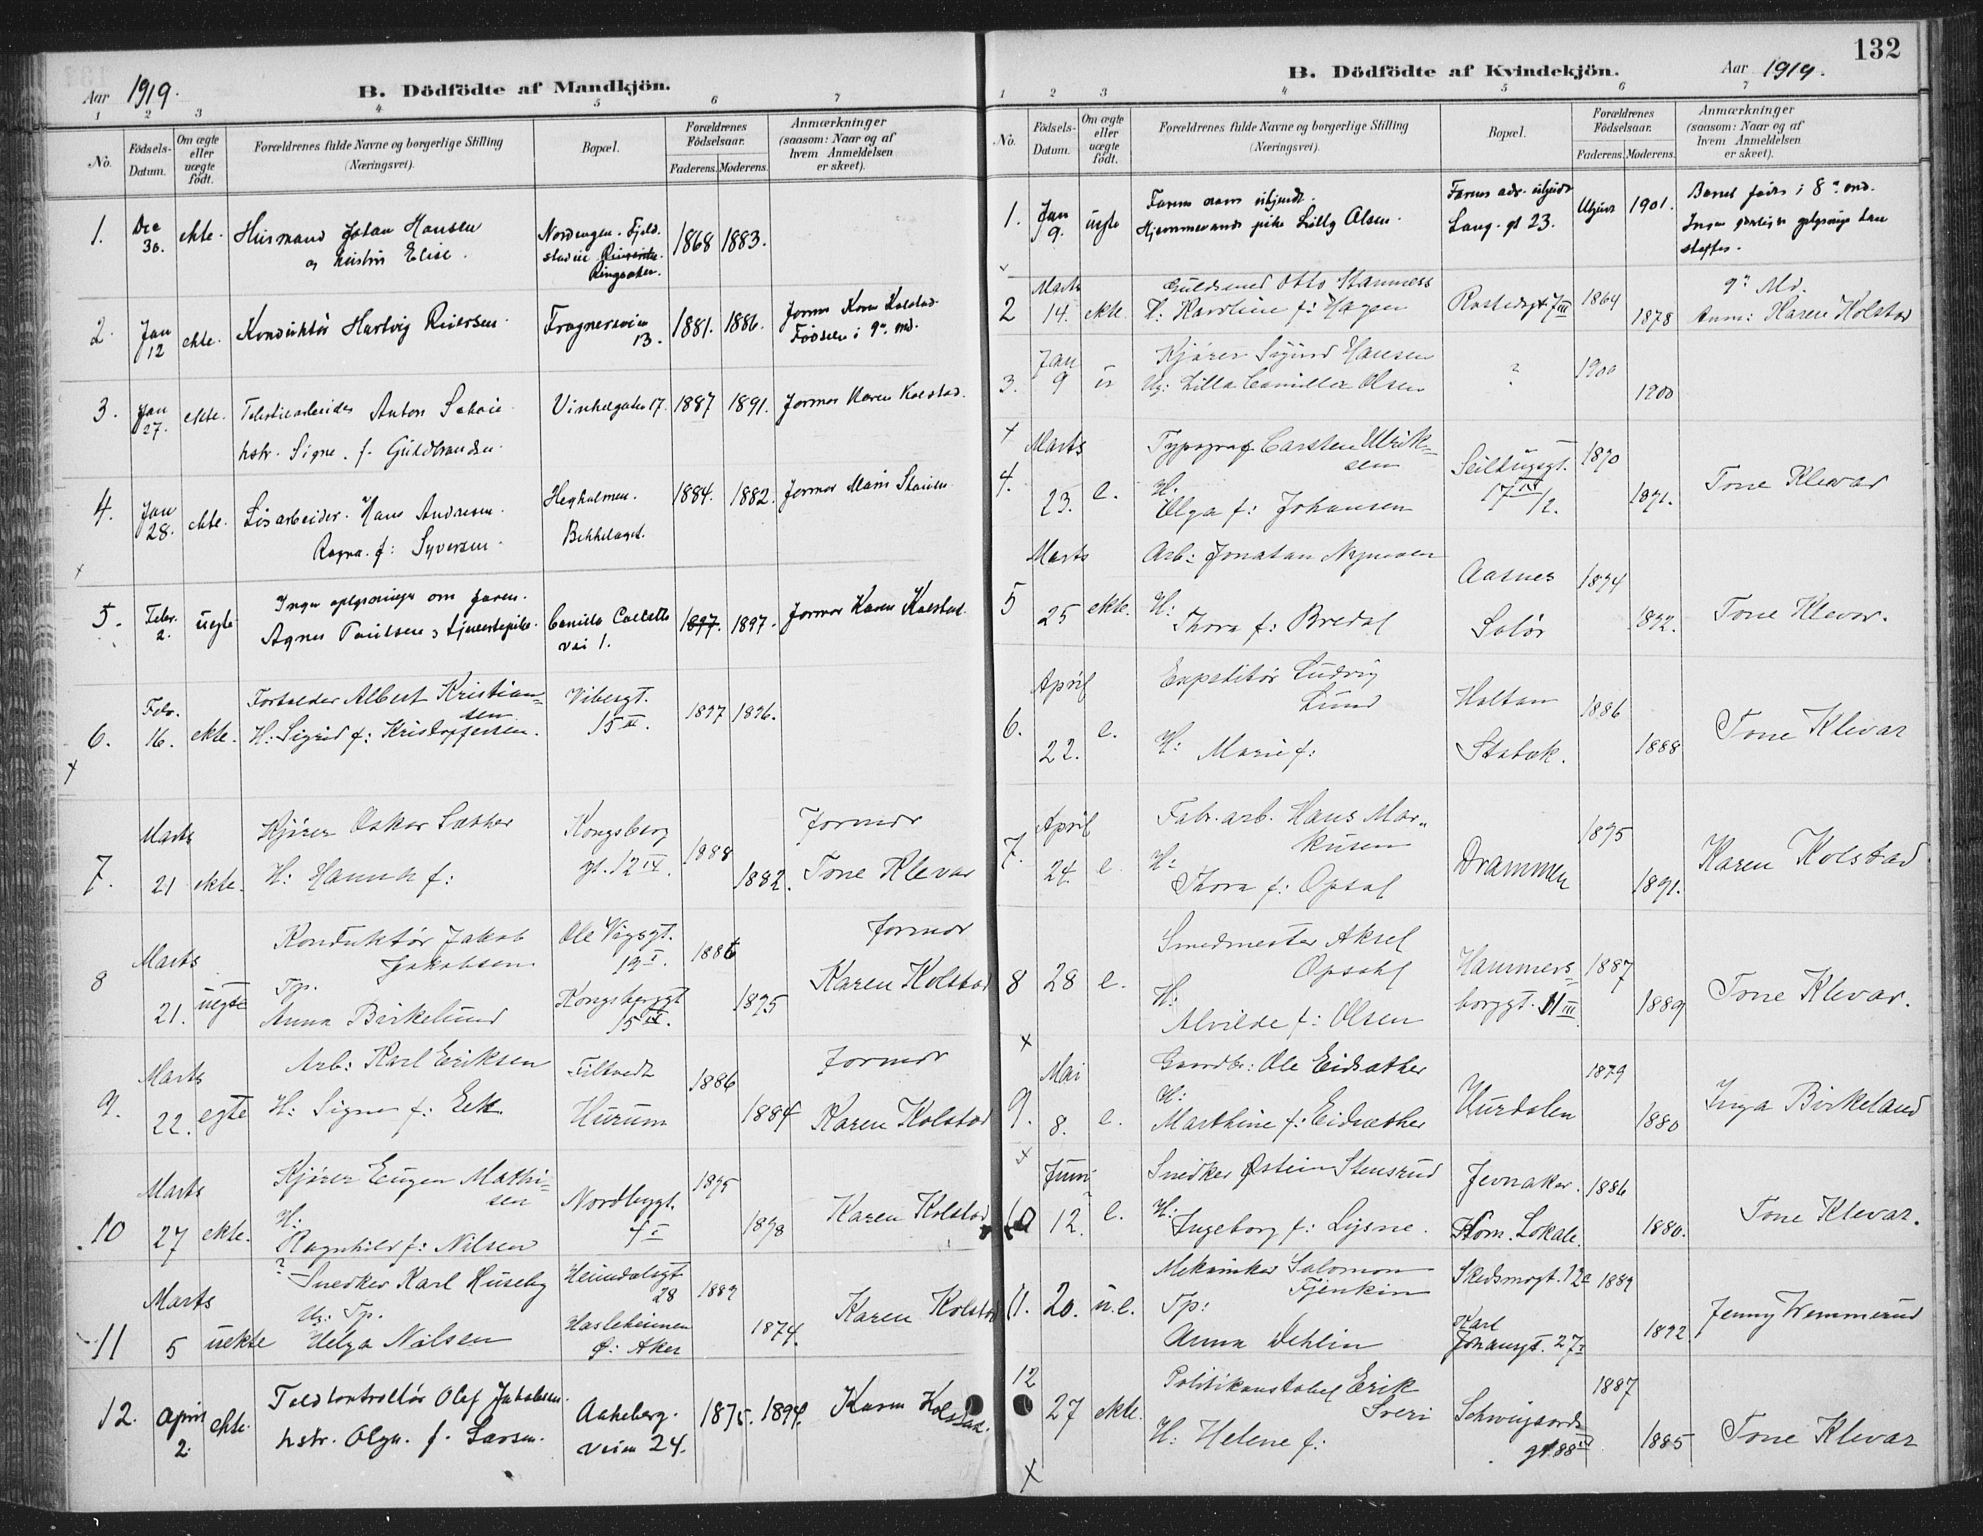 132
Aar 1919.
B. Dödfödte af Mandkjön.
1 2 3 4 5 6 7
No.
Födsels-Datum.
Om ægte eller uægte födt.
Forældrenes fulde Navne og borgerlige Stilling
(Næringsvei).
Bopæl.
Forældrenes Födselsaar.
Faderens. Moderens.
Anmærkninger
(saasom: Naar og af
hvem Anmeldelsen
er skeet).
1. Dec 30. ekte. Husmand Johan Hansen
og Elise.
1868 1883.
Ringsaker.
2. Jan 12 ekte. Konduktör Hartvig Reiersen.
Frognerveien 13. 1881. 1886. Jormor Karen Kolstad.
Födselen i 9de md.
3. Jan 27. ekte. Anton
17. 1887 1891. Jormor Karen Kolstad.
hstr. Signe. f. Guldbrandsen.
4. Jan 28. ekte. Lösarbeider. Hans Andresen.
Ragna. f: Syversen.
Heggholmen.
Bekkelaget.
1884. 1882. Jormor
5. Febr. 2. uegte Ingen oplysninger om faren.
Agnes Paulsen, tjenestepike.
Camilla Colletts vei 1.
1897. 1897. Jormor Karen Kolstad.
6. Febr. 16. ekte. Forgylder Albert Kristiansen
H: Sigrid f: Kristoffersen.
Vibesgt. 15 III. 1897 1896.
7. Marts 21 ekte. Kjörer Oskar Sæther
H: Hanna f:
Kongsberg gt. 12 IV. 1888 1882. Jormor
Tone Klevar
8 Marts 21. uegte Konduktör Jakob Jakobsen
Tp. Anna Birkelund
Ole Vigsgt. 19 I.
Kongsberggt 15 IV.
1886 1895 Jormor
Karen Kolstad
9. Marts 22. egte Arb: Karl Eriksen
H: Signe f: Eek
Filtvedt
Hurum
1886 1884 Jormor
Karen Kolstad
10 Marts 27 ekte. Kjörer Eugen Mathisen
H: Ragnhild f: Nilsen
Nordbygt. 4 I. 1895 1898 Karen Kolstad
11 Marts 5 uekte ? Snedker Karl Huseby
Ug: Tp. Helga Nilsen
Heimdalsgt 28
Hasleheimen Ö: Aker
1889 1874. Karen Kolstad
12. April 2. ekte. Toldkontrollör Olef Jakobsen.
hstr. Olga. f. Larsen.
Aakeberg-veien 24. 1875. 1894. Karen Kolstad.
B. Dödfödte af Kvindekjön.
Aar 1919.
1 2 3 4 5 6 7
No.
Födsels-Datum.
Om ægte eller uægte födt.
Forældrenes fulde Navne og borgerlige Stilling
(Næringsvei).
Bopæl.
Forældrenes Födselsaar.
Faderens. Moderens.
Anmærkninger
(saasom: Naar og af
hvem Anmeldelsen
er skeet).
1. Jan 9. uegte Farens navn ukjendt.
Hjemmeværende pike Lilly Olsen.
Farens adr. ukjendt
Lang. gt 23. Ukjent 1901. Barnet födes i 8de md.
Ingen
2 Marts 14. ekte. Guldsmed Otto
H: Karoline f: Hagen
7 III 1864 1878 9de Md.
Anm: Karen Kolstad
3. Jan 9 u Kjörer Sigurd Hansen
Ug: Lilla Camilla Olsen
? 1900 1900
4. Marts 23. e. Typograf Carsten Ulriksen
H: Olga f: Johansen
Seilduksgt. 17
1890 1891. Tone Klevar
5 Marts 25 ekte. Arb: Jonatan
H: Thora f: Bredal
Aasnes
Solör
1894 1892. Tone Klevar.
6. April 22. e. Expeditör Ludvig Lund
H: Marie f:
Holtan
Stabæk.
1886 1888 Tone Klevar
7. April 24. e. Fabr. arb. Hans Markusen
H: Thora f: Opsal
Drammen 1895 1891. Karen Kolstad
8 28 e. Smedmester Aksel Opsahl
H: Alvilde f: Olsen
Hammersborggt. 11 III 1887 1889 Tone Klevar.
9. Mai 8. e. Gaardbr: Ole Eidsæther
H: Marthine f: Eidsæther
Hurdalen 1879 1880 Inga Birkeland
10 Juni 12. e. Snedker Östein Stensrud
H: Ingeborg f: Lysne.
Jevnaker.
Kom. Lokale.
1886 1880. Tone Klevar.
11. 20. u.e. Mekaniker Salomon Fjenkin
Tp: Anna Dehlin
Skedsmogt. 12c
Karl Johansgt. 27 I
1889 1892 Jenny Wemmerud
12 27 ekte. Politikonstabel Erik Sveri
H: Helene f:
Schweigaards gt. 88 IV
1887 1885 Tone Klevar